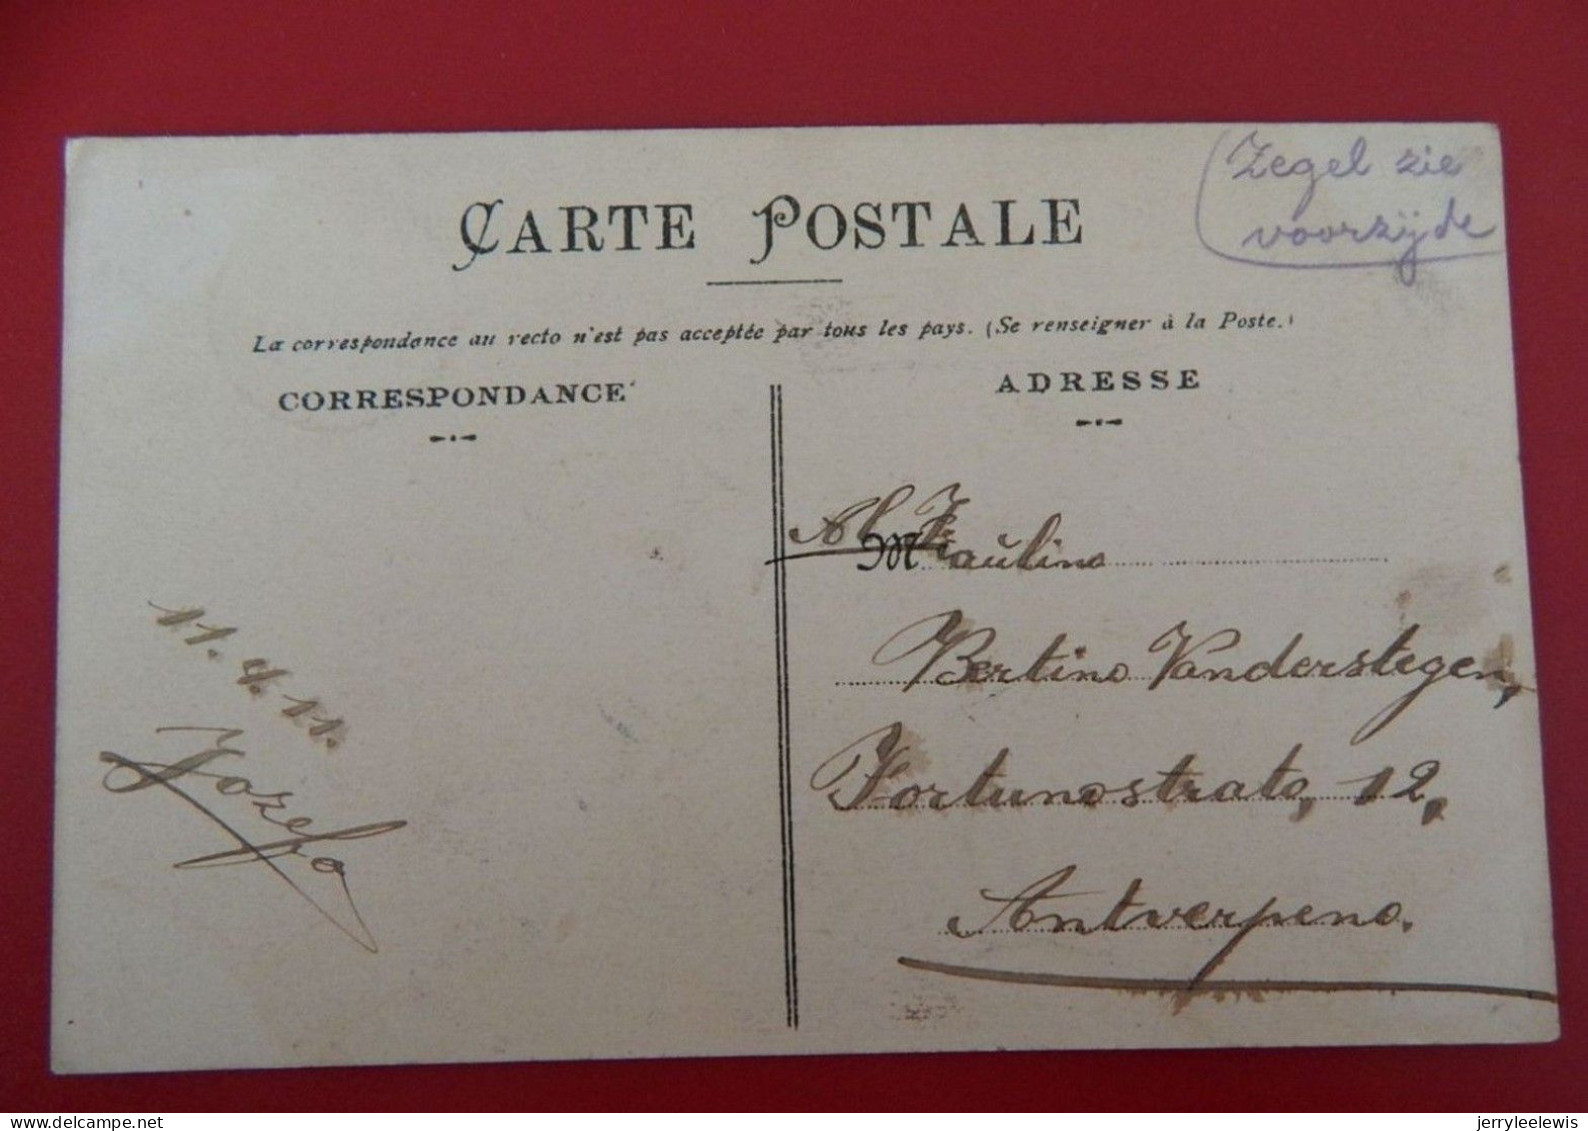 Zegel zie
voorzijde
CARTE POSTALE
La correspondance au recto n'est pas acceptée par tous les pays. (Se renseigner à la Poste.)
CORRESPONDANCE
ADRESSE
Al
M
aŭlino
Bertino Vanderstegen,
Fortunostrato, 12,
Antverpeno.
11.4.11.
Jozefo
delcampe.net
jerryleelewis